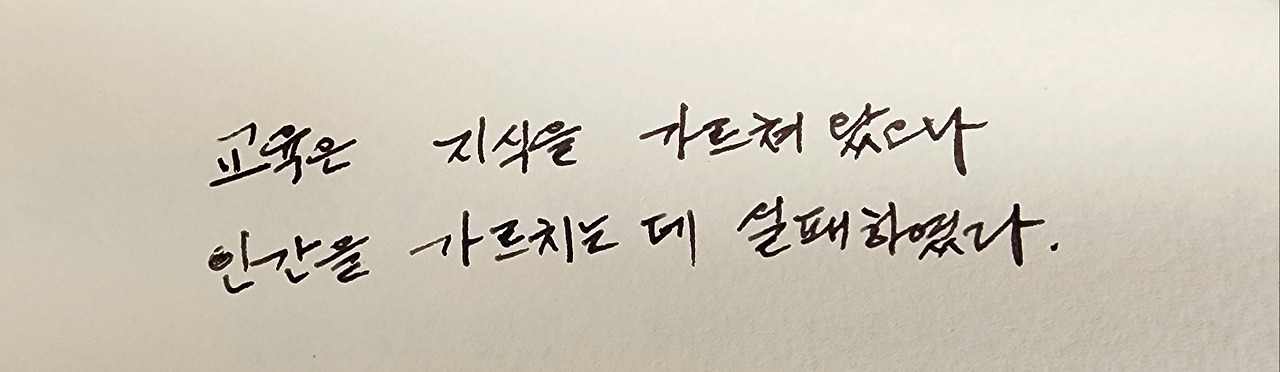 교육은 지식을 가르쳐 왔으나
인간을 가르치는 데 실패하였다.